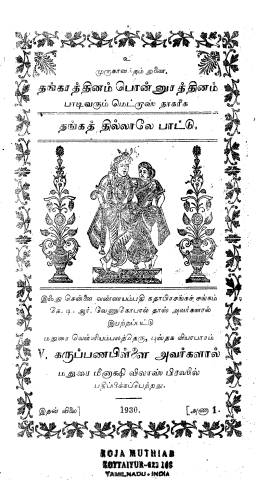 உ
முருகானந்தம் துணை,
தங்காத்தினம் பொன்னுாத்தினம்
பாடிவரும் மெட்முஸ் நாகரீக
தங்கத் தில்லாலே பாட்டு,
இஃது சென்னை வண்ணயம்பதி கதாபிரசங்கச் சங்கம்
கே. டி. ஆர். வேணுகோபால் தாஸ் அவர்களால்
இயற்றப்பட்டு
மதுரை வெள்ளியம்பலத்தெரு, புஸ்தக வியாபாரம்
V. கருப்பணபிள்ளை அவர்களால்
மதுரை மீனாக்ஷி விலாஸ் பிரஸில்
பதிப்பிக்கப்பெற்றது.
இதன் விலை] 1930. [அணா 1.
ROJA MUTHIAH
KOTTAIYUR-623 106
TAMIL NADU • INDIA